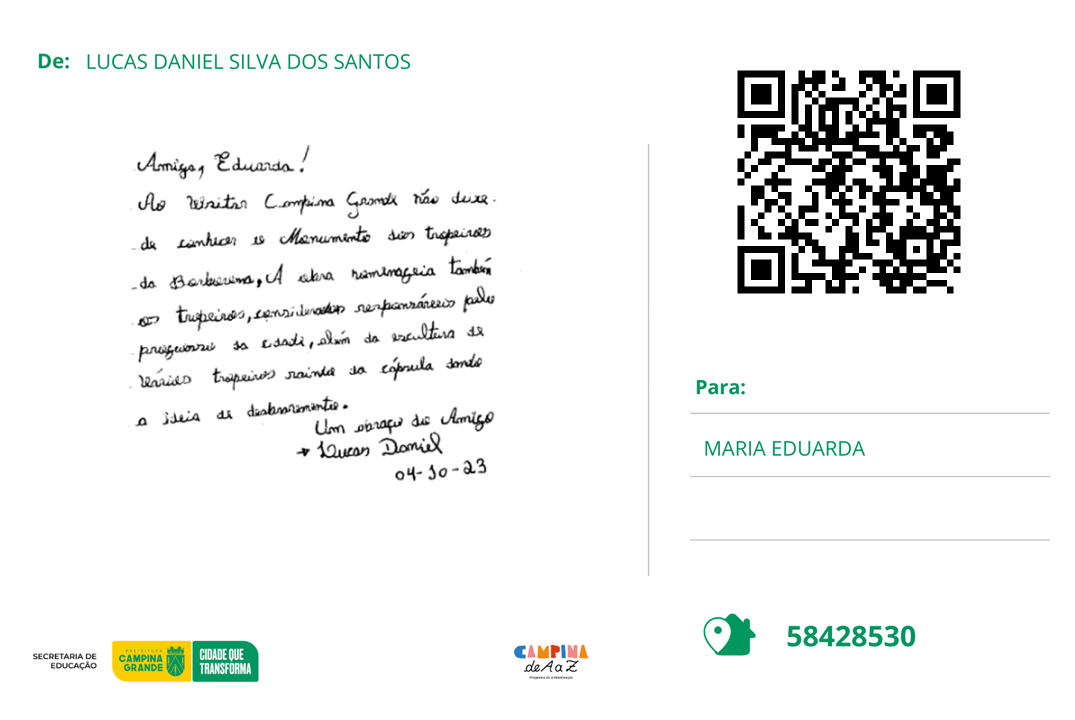 De: LUCAS DANIEL SILVA DOS SANTOS
Amiga, Eduarda!
Ao visitar Campina Grande não deixe
de conhecer o Monumento dos tropeiros
da Borborema, A obra homenageia também
os tropeiros, considerados responsáveis pelo
progresso da cidade, além da escultura de
vários tropeiros saindo da cápsula dando
a ideia de desbravamento.
Um abraço do Amigo
→ Lucas Daniel
04-10-23
Para:
MARIA EDUARDA
58428530
SECRETARIA DE
EDUCAÇÃO
PREFEITURA
CAMPINA
GRANDE
CIDADE QUE
TRANSFORMA
CAMPINA
de A a Z
Programa de Alfabetização